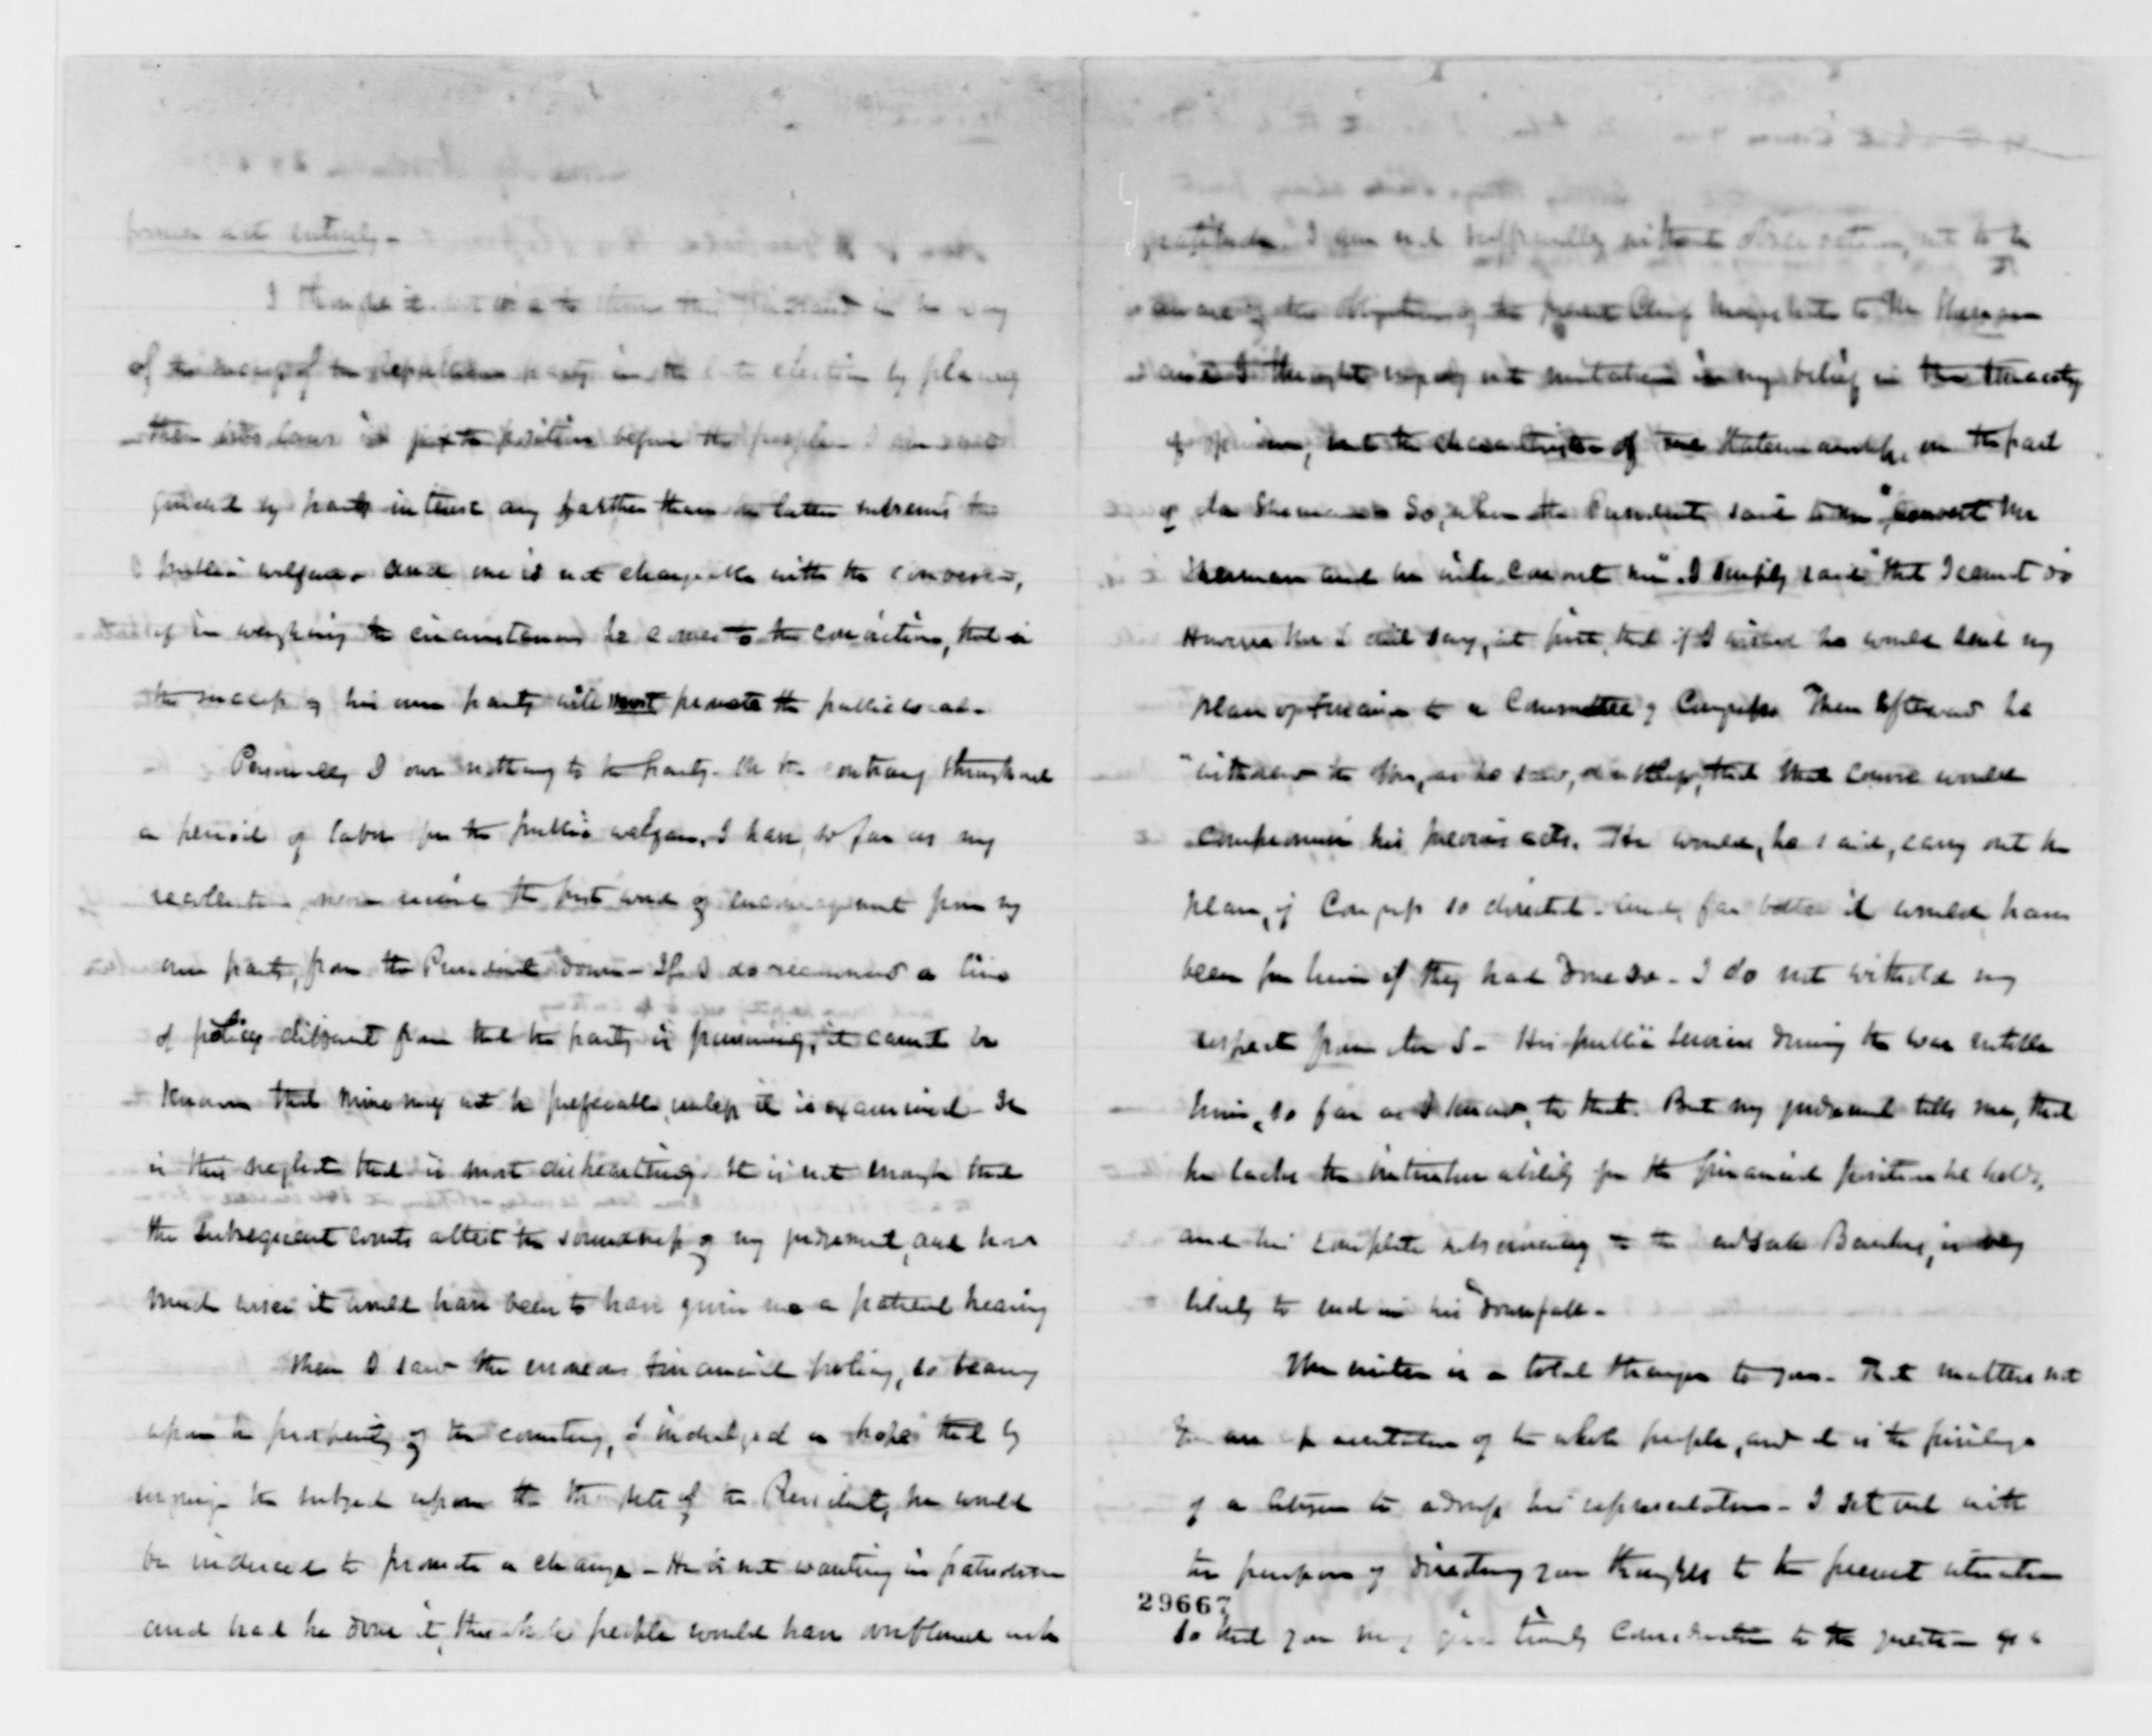 former acts entirely -
I thought it not wise to throw this in the way
of the success of the Republican party in the late election by placing
the in juxta position before the people I am not
guided by party interest any farther than the latter subserves the
public welfare. And one is not chargeable with the converse,
if in weighing the circumstances he comes to the conviction, that in
the success of his own party will most promote the public weal.
Personally I owe nothing to the party. On the contrary throughout
a period of labor for the public welfare, I have, so far as my
recollection, never received the first word of encouragement from my
own party, from the President down - If I do recommend a line
of policy different from that the party is pursuing, it cannot be
known that mine may not be preferable, unless it is examined - It
is this neglect that is most disheartening. It is not enough that
the subsequent events attest the soundness of my judgment, and how
much wiser it would have been to have given me a patient hearing
When I saw the erroneous financial policy, so bearing
upon the prosperity of the country, I indulged a hope that by
the subject upon the of the President, he would
be induced to promote a change - He is not wanting in patriotism
and had he done it, the whole people would have with
gratitude. I am not sufficiently without observation, not to be
aware of the of the present Chief Magistrate to Mr Sherman
and I thought in my belief in the tenacity
of opinion, not the characteristics of true Statesmanship, on the part
of Mr Sherman So, when the President said to me "convert Mr
Sherman and he will convert me". I simply said "that I cannot do"
However Mr S did say, at first, that if I wished he would send my
plan of Finance to a Committee of Congress Then afterward he
withdrew the offer, as he saw, doubtless, that that course would
compromise his previous acts. He would, he said, carry out the
plan, if Congress so directed. And far better it would have
been for him if they had done so - I do not withold my
respect from Mr S - His public services during the war entitle
him, so far as I know, to that. But my judgment tells me, that
he lacks the ability for the financial position he holds,
and his complete subserviency to the Bankers, is very
likely to end in his downfall -
The writer is a total stranger to you - That matters not
You are representative of the whole people, and it is the privilege
of a citizen to address his representative - I set out with
the purpose of directing your thoughts to the present situation
29667
so that you may give timely consideration to the question of a